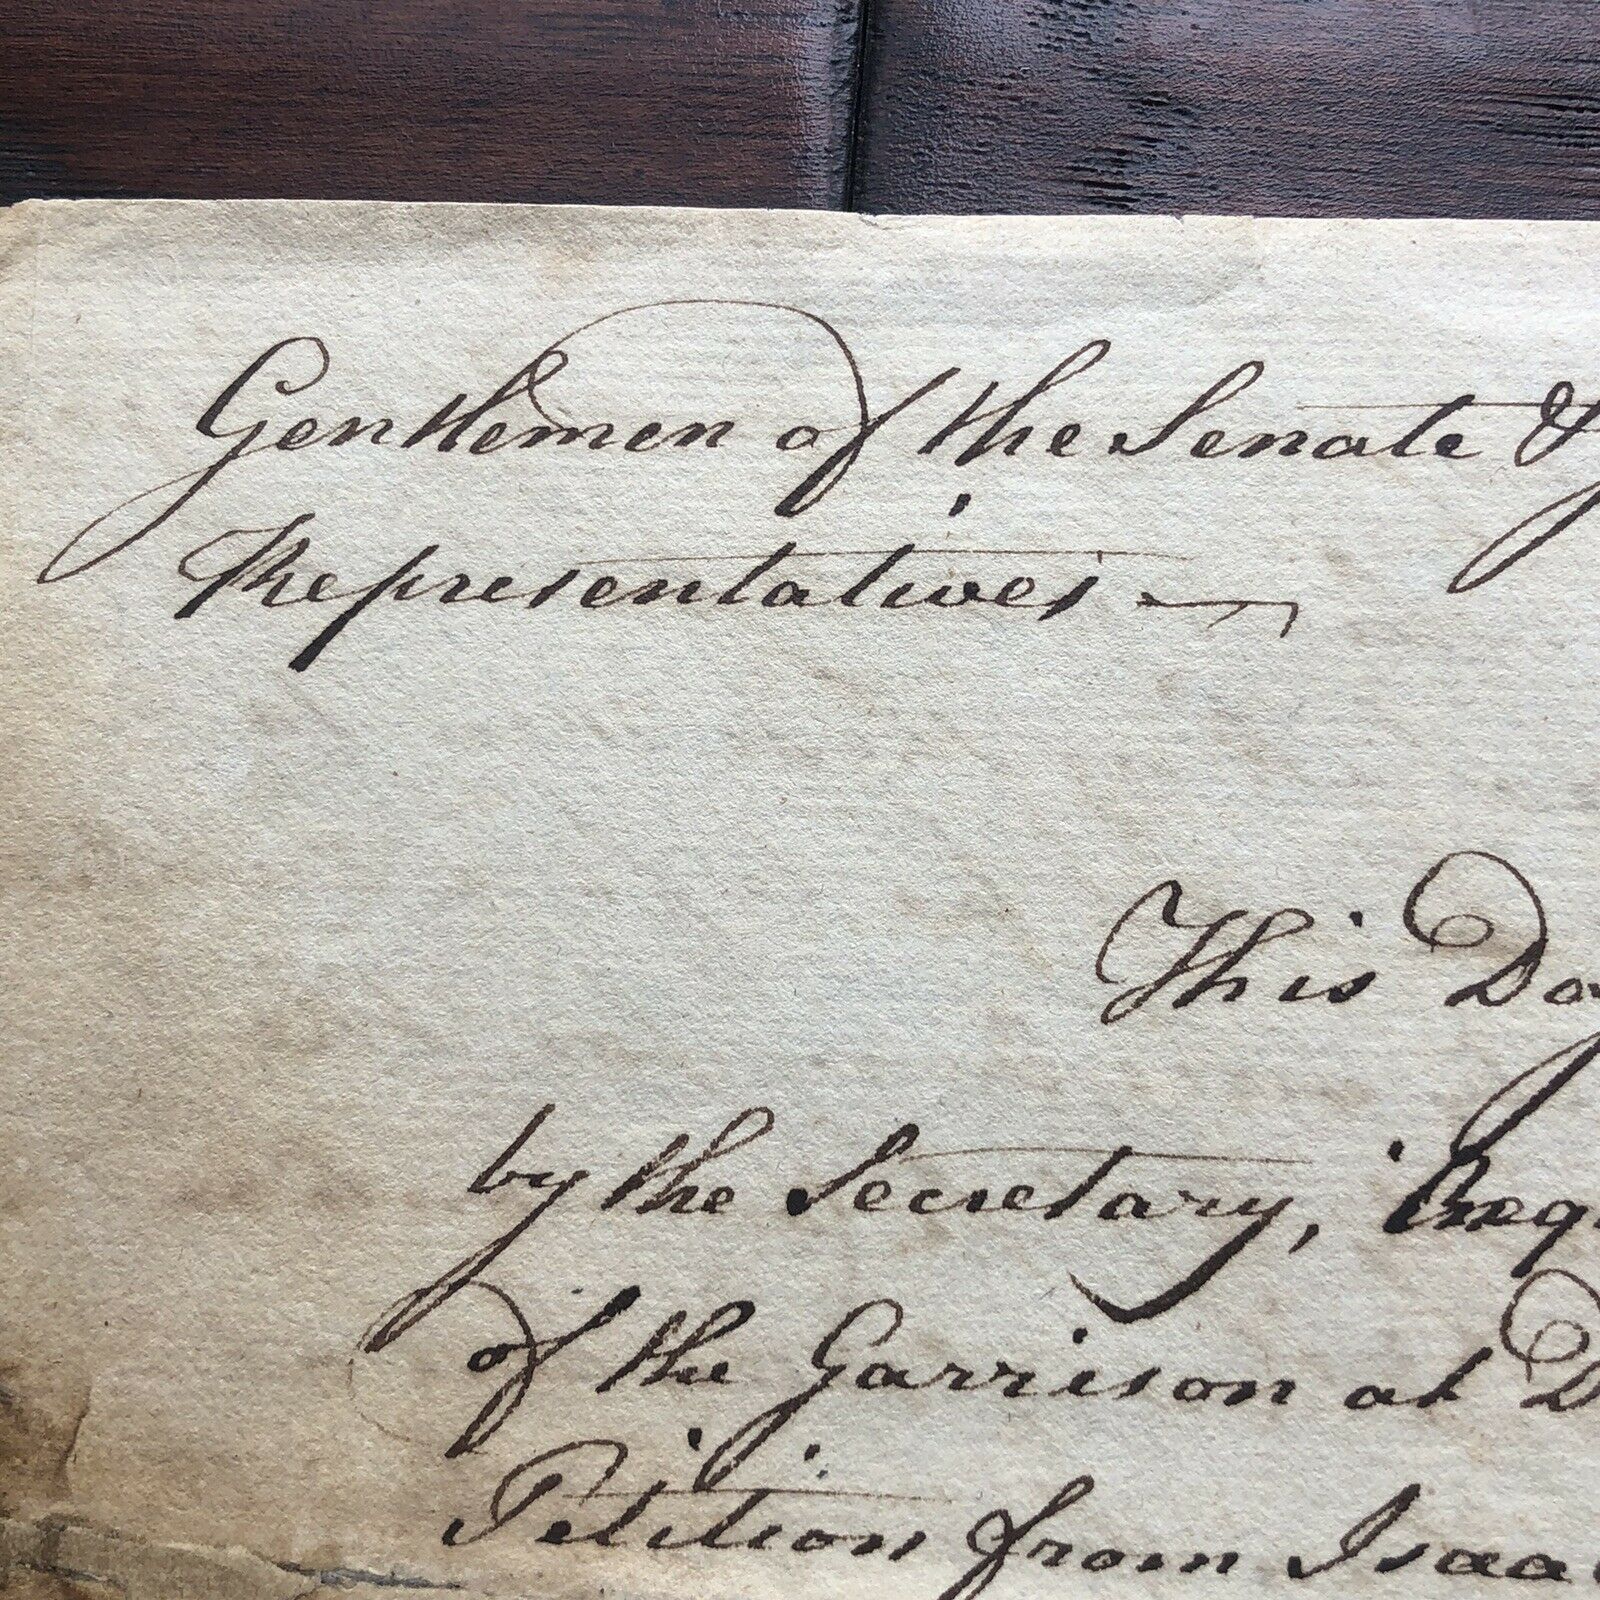 Gentlemen of the Senate &
Representatives
This Day
by the Secretary,
of the Garrison at D
Petition from Isaa